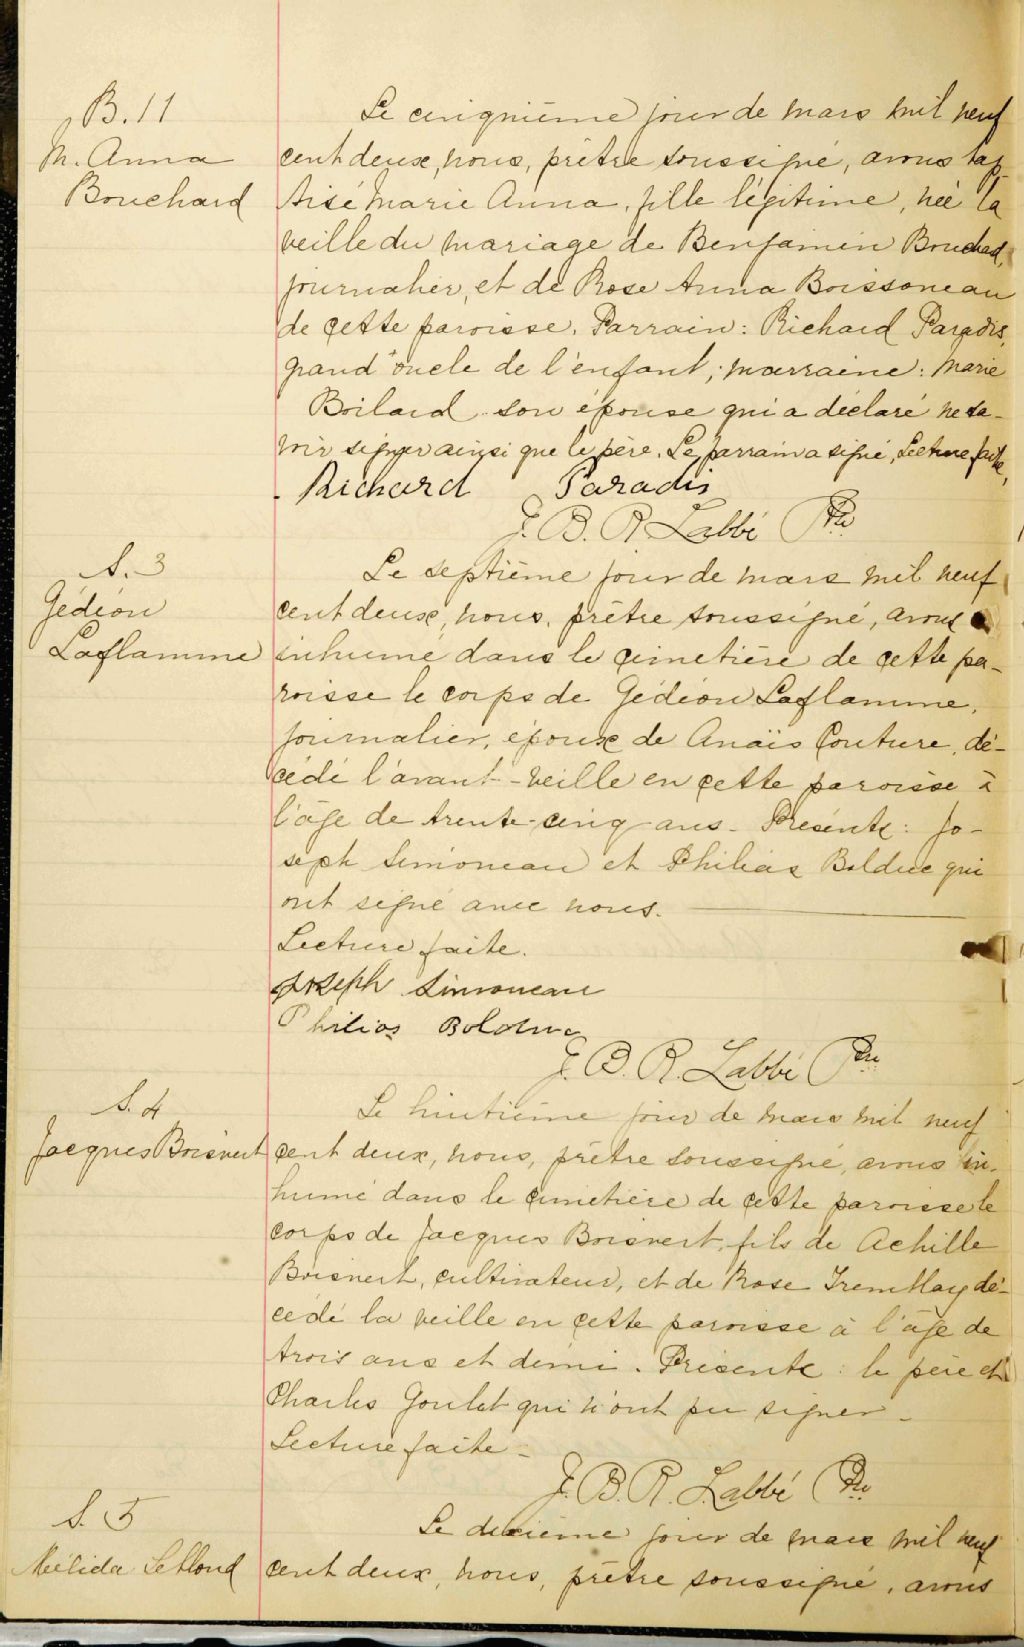 B. 11
M. Anna
Bouchard
Le cinquième jour de mars mil neuf
cent deux, nous, prêtre soussigné, avons bap-
tisé Marie Anna, fille légitime, née la
veille du mariage de Benjamin Bouchard,
journalier, et de Rose Anna Boissoneau
de cette paroisse. Parrain: Richard Paradis,
grand'oncle de l'enfant; marraine: Marie
Boilard son épouse qui a déclaré ne sa-
voir signer ainsi que le père. Le parrain a signé, Lecture faite,
Richard Paradis
J. B. R. Labbé Ptre
S. 3
Gédéon
Laflamme
Le septième jour de mars mil neuf
cent deux, nous, prêtre soussigné, avons
inhumé dans le cimetière de cette pa-
roisse le corps de Gédéon Laflamme,
journalier, époux de Anaïs Couture, dé-
cédé l'avant-veille en cette paroisse à
l'âge de trente-cinq ans. Présents: Jo-
seph Simoneau et Philias Bolduc qui
ont signé avec nous.
Lecture faite.
Joseph Simoneau
Philias Bolduc
J. B. R. Labbé Ptre
S. 4
Jacques Boisvert
Le huitième jour de mars mil neuf
cent deux, nous, prêtre soussigné, avons in-
humé dans le cimetière de cette paroisse le
corps de Jacques Boisvert, fils de Achille
Boisvert, cultivateur, et de Rose Tremblay dé-
cédé la veille en cette paroisse à l'âge de
trois ans et demi. Présents: le père et
Charles Goulet qui n'ont pu signer.
Lecture faite.
J. B. R. Labbé Ptre
S. 5
Mélida Leblond
Le dixième jour de mars mil neuf
cent deux, nous, prêtre soussigné, avons